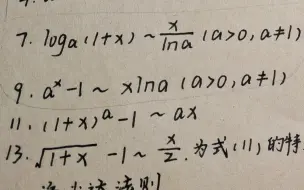 7. logₐ(1+x) ~ x/lna (a>0, a≠1)
9. aˣ-1 ~ xlna (a>0, a≠1)
11. (1+x)ᵃ-1 ~ ax
13. √(1+x) -1 ~ x/2. 为式(11)的特
法则